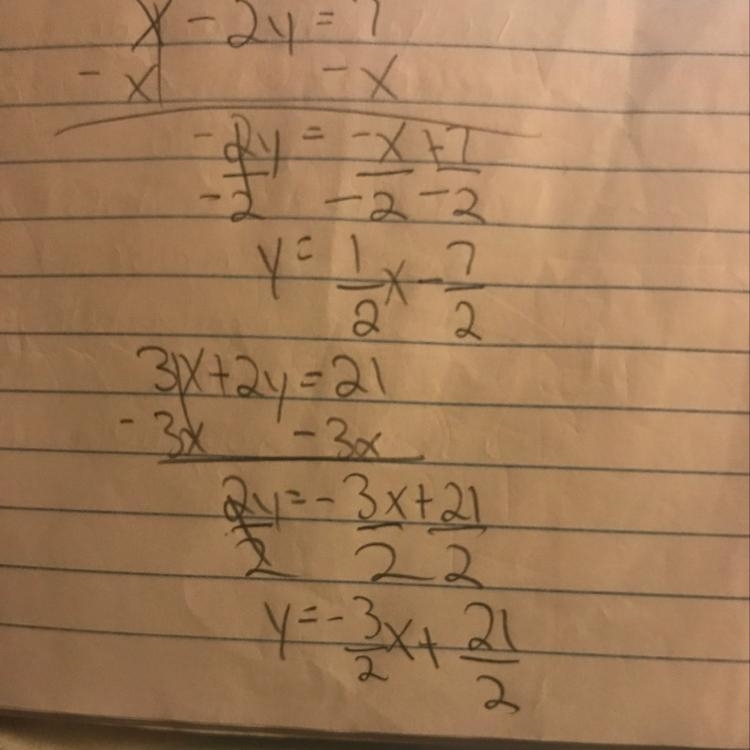 x - 2y = 7
- x - x
-2y = -x + 7
-2 -2 -2
y = 1/2 x - 7/2
3x + 2y = 21
- 3x - 3x
2y = -3x + 21
2 2 2
y = -3/2 x + 21/2